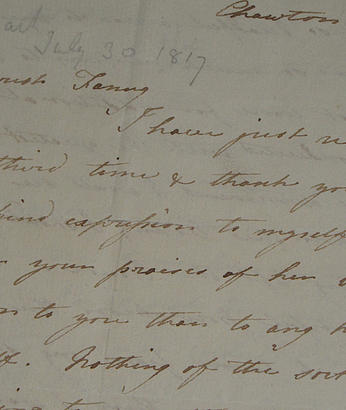 Chawton
art
July 30 1817
Fanny
I have just r
third time & thank yo
kind expression to myself
your praises of her
n to you than to any
f. Nothing of the sort